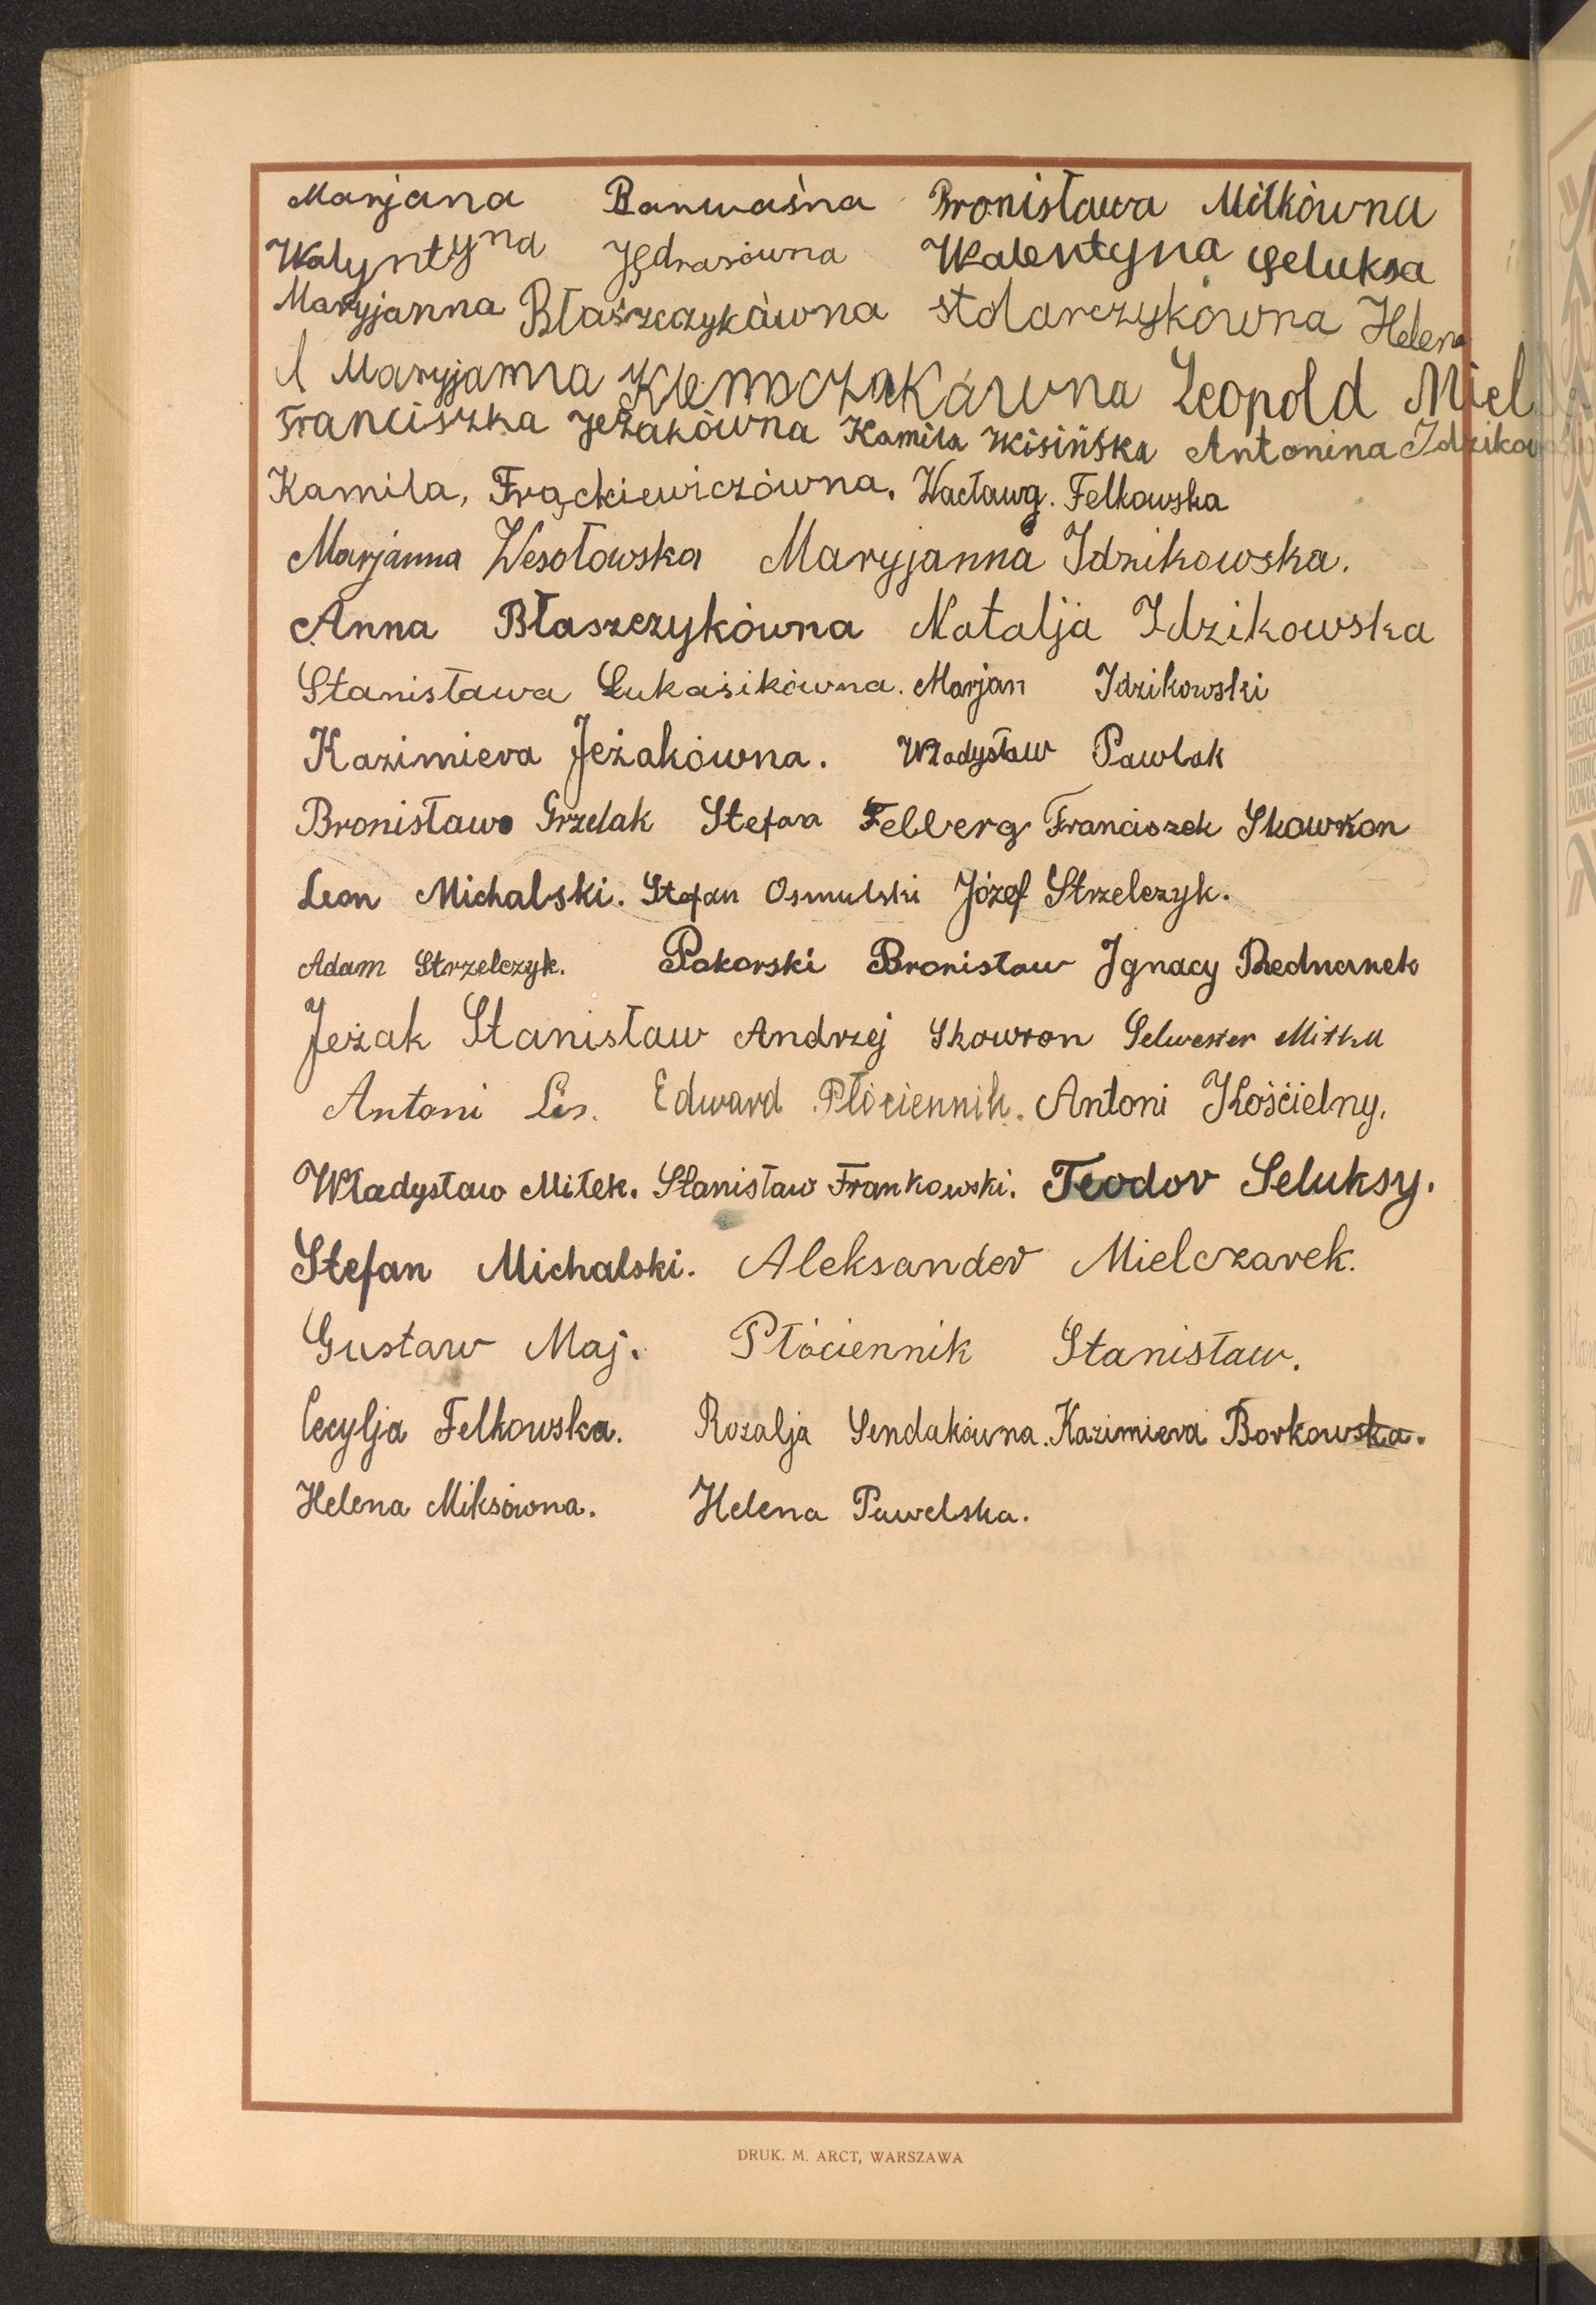 Marjana Banwaśna Bronisława Miłkówna
Walyntyna Jędrasówna Walentyna Seluksa
Maryjanna Błaszczykówna Stolarczykówna Helena
Maryjanna Klemczakówna Leopold Miel
Franciszka Jeżakówna Kamila Wisińska Antonina Idzikow
Kamila, Frąckiewiczówna, Wacława. Felkowska
Marjanna Wesołowska Maryjanna Idzikowska.
Anna Błaszczykówna Natalja Idzikowska
Stanisława Łukasikówna. Marjan Idzikowski
Kazimiera Jeżakówna. Władysław Pawlak
Bronisława Grzelak Stefan Felberg Franciszek Skowron
Leon Michalski. Stefan Osmulski Józef Strzelczyk.
Adam Strzelczyk. Pakorski Bronisław Ignacy Bednarek
Jeżak Stanisław Andrzej Skowron Selwester Mitka
Antoni Lis. Edward Płóciennik. Antoni Kościelny.
Władysław Miłek. Stanisław Frankowski. Teodor Seluksy.
Stefan Michalski. Aleksander Mielczarek.
Gustaw Maj. Płóciennik Stanisław.
Cecylja Felkowska. Rozalja Sendakówna. Kazimiera Borkowska.
Helena Miksówna. Helena Pawelska.
DRUK. M. ARCT, WARSZAWA